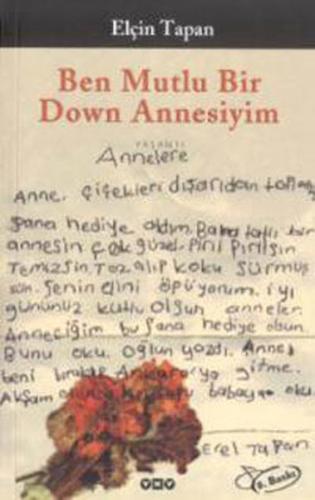 Elçin Tapan
Ben Mutlu Bir
Down Annesiyim
YAŞANTI
Annelere
Anne, çiçekleri dışarıdan
Sana hediye aldım. Bana tatlı bir
annesin çok güzel. Pırıl Pırılsın
Temizsin, Toz alıp koku sürmüş
sün. Senin elini öpüyorum. iyi
gününüz kutlu olsun anneler
Anneciğim bu sana hediye olsun.
Bunu oku. oğlun yazdı. Anne
beni bırakıp Ankara'ya gitme.
Akşam babaya oku.
Erel Tapan
YKY
8. Baskı